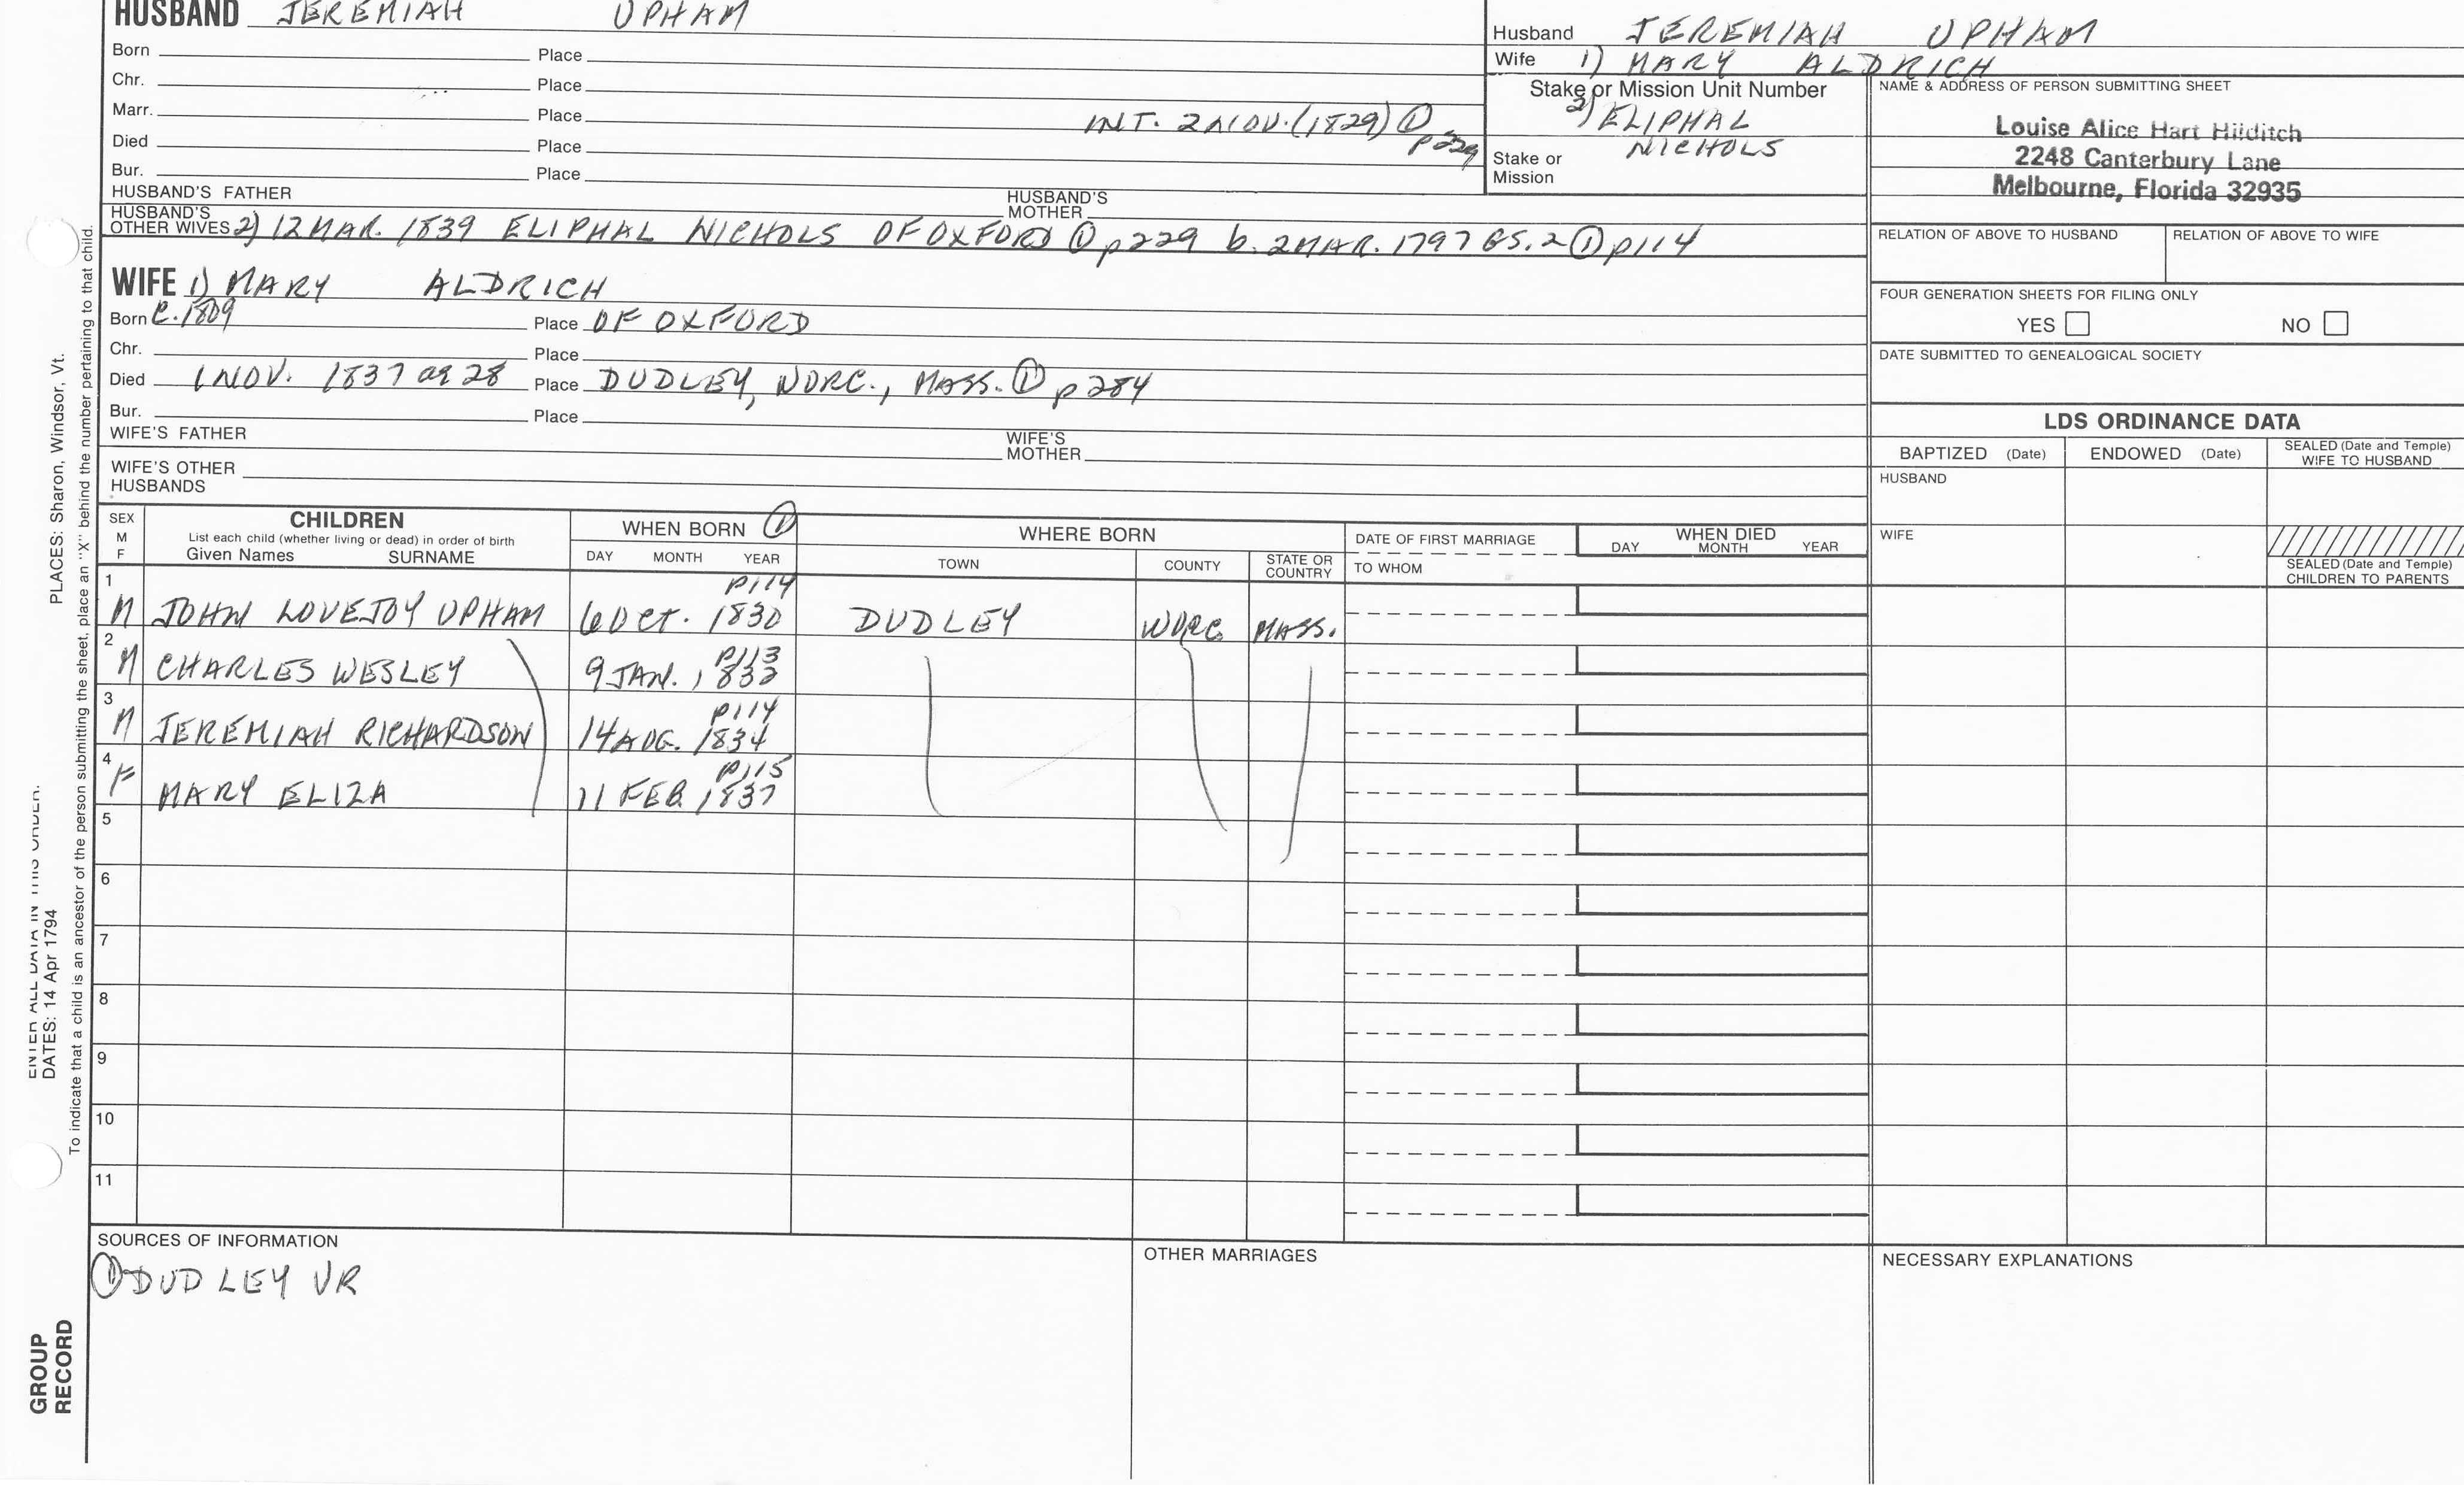 HUSBAND JEREMIAH UPHAM
Born Place
Chr. Place
Marr. Place INT. 2 NOV. (1829) ① p229
Died Place
Bur. Place
HUSBAND'S FATHER HUSBAND'S MOTHER
HUSBAND'S OTHER WIVES 2) 12 MAR. 1839 ELIPHAL NICHOLS OF OXFORD ① p229 b. 2 MAR. 1797 GS. 2 ① p114
WIFE 1) MARY ALDRICH
Born C. 1809 Place OF OXFORD
Chr. Place
Died 1 NOV. 1837 ag 28 Place DUDLEY, WORC., MASS. ① p284
Bur. Place
WIFE'S FATHER WIFE'S MOTHER
WIFE'S OTHER HUSBANDS
Husband JEREMIAH UPHAM
Wife 1) MARY ALDRICH
Stake or Mission Unit Number
2) ELIPHAL
NICHOLS
Stake or Mission
NAME & ADDRESS OF PERSON SUBMITTING SHEET
Louise Alice Hart Hilditch
2248 Canterbury Lane
Melbourne, Florida 32935
RELATION OF ABOVE TO HUSBAND RELATION OF ABOVE TO WIFE
FOUR GENERATION SHEETS FOR FILING ONLY
YES NO
DATE SUBMITTED TO GENEALOGICAL SOCIETY
LDS ORDINANCE DATA
BAPTIZED (Date) ENDOWED (Date) SEALED (Date and Temple) WIFE TO HUSBAND
HUSBAND
WIFE
SEALED (Date and Temple) CHILDREN TO PARENTS
SEX M F
CHILDREN
List each child (whether living or dead) in order of birth
Given Names SURNAME
WHEN BORN ①
DAY MONTH YEAR
WHERE BORN
TOWN COUNTY STATE OR COUNTRY
DATE OF FIRST MARRIAGE
TO WHOM
WHEN DIED
DAY MONTH YEAR
p114
1 M JOHN LOVEJOY UPHAM 6 OCT. 1830 DUDLEY WORC. MASS.
p113
2 M CHARLES WESLEY 9 JAN. 1832
p114
3 M JEREMIAH RICHARDSON 14 AUG. 1834
p115
4 F MARY ELIZA 11 FEB. 1837
5
6
7
8
9
10
11
SOURCES OF INFORMATION
① DUDLEY VR
OTHER MARRIAGES
NECESSARY EXPLANATIONS
PLACES: Sharon, Windsor, Vt.
ENTER ALL DATA IN THIS ORDER:
DATES: 14 Apr 1794
To indicate that a child is an ancestor of the person submitting the sheet, place an "X" behind the number pertaining to that child.
GROUP
RECORD